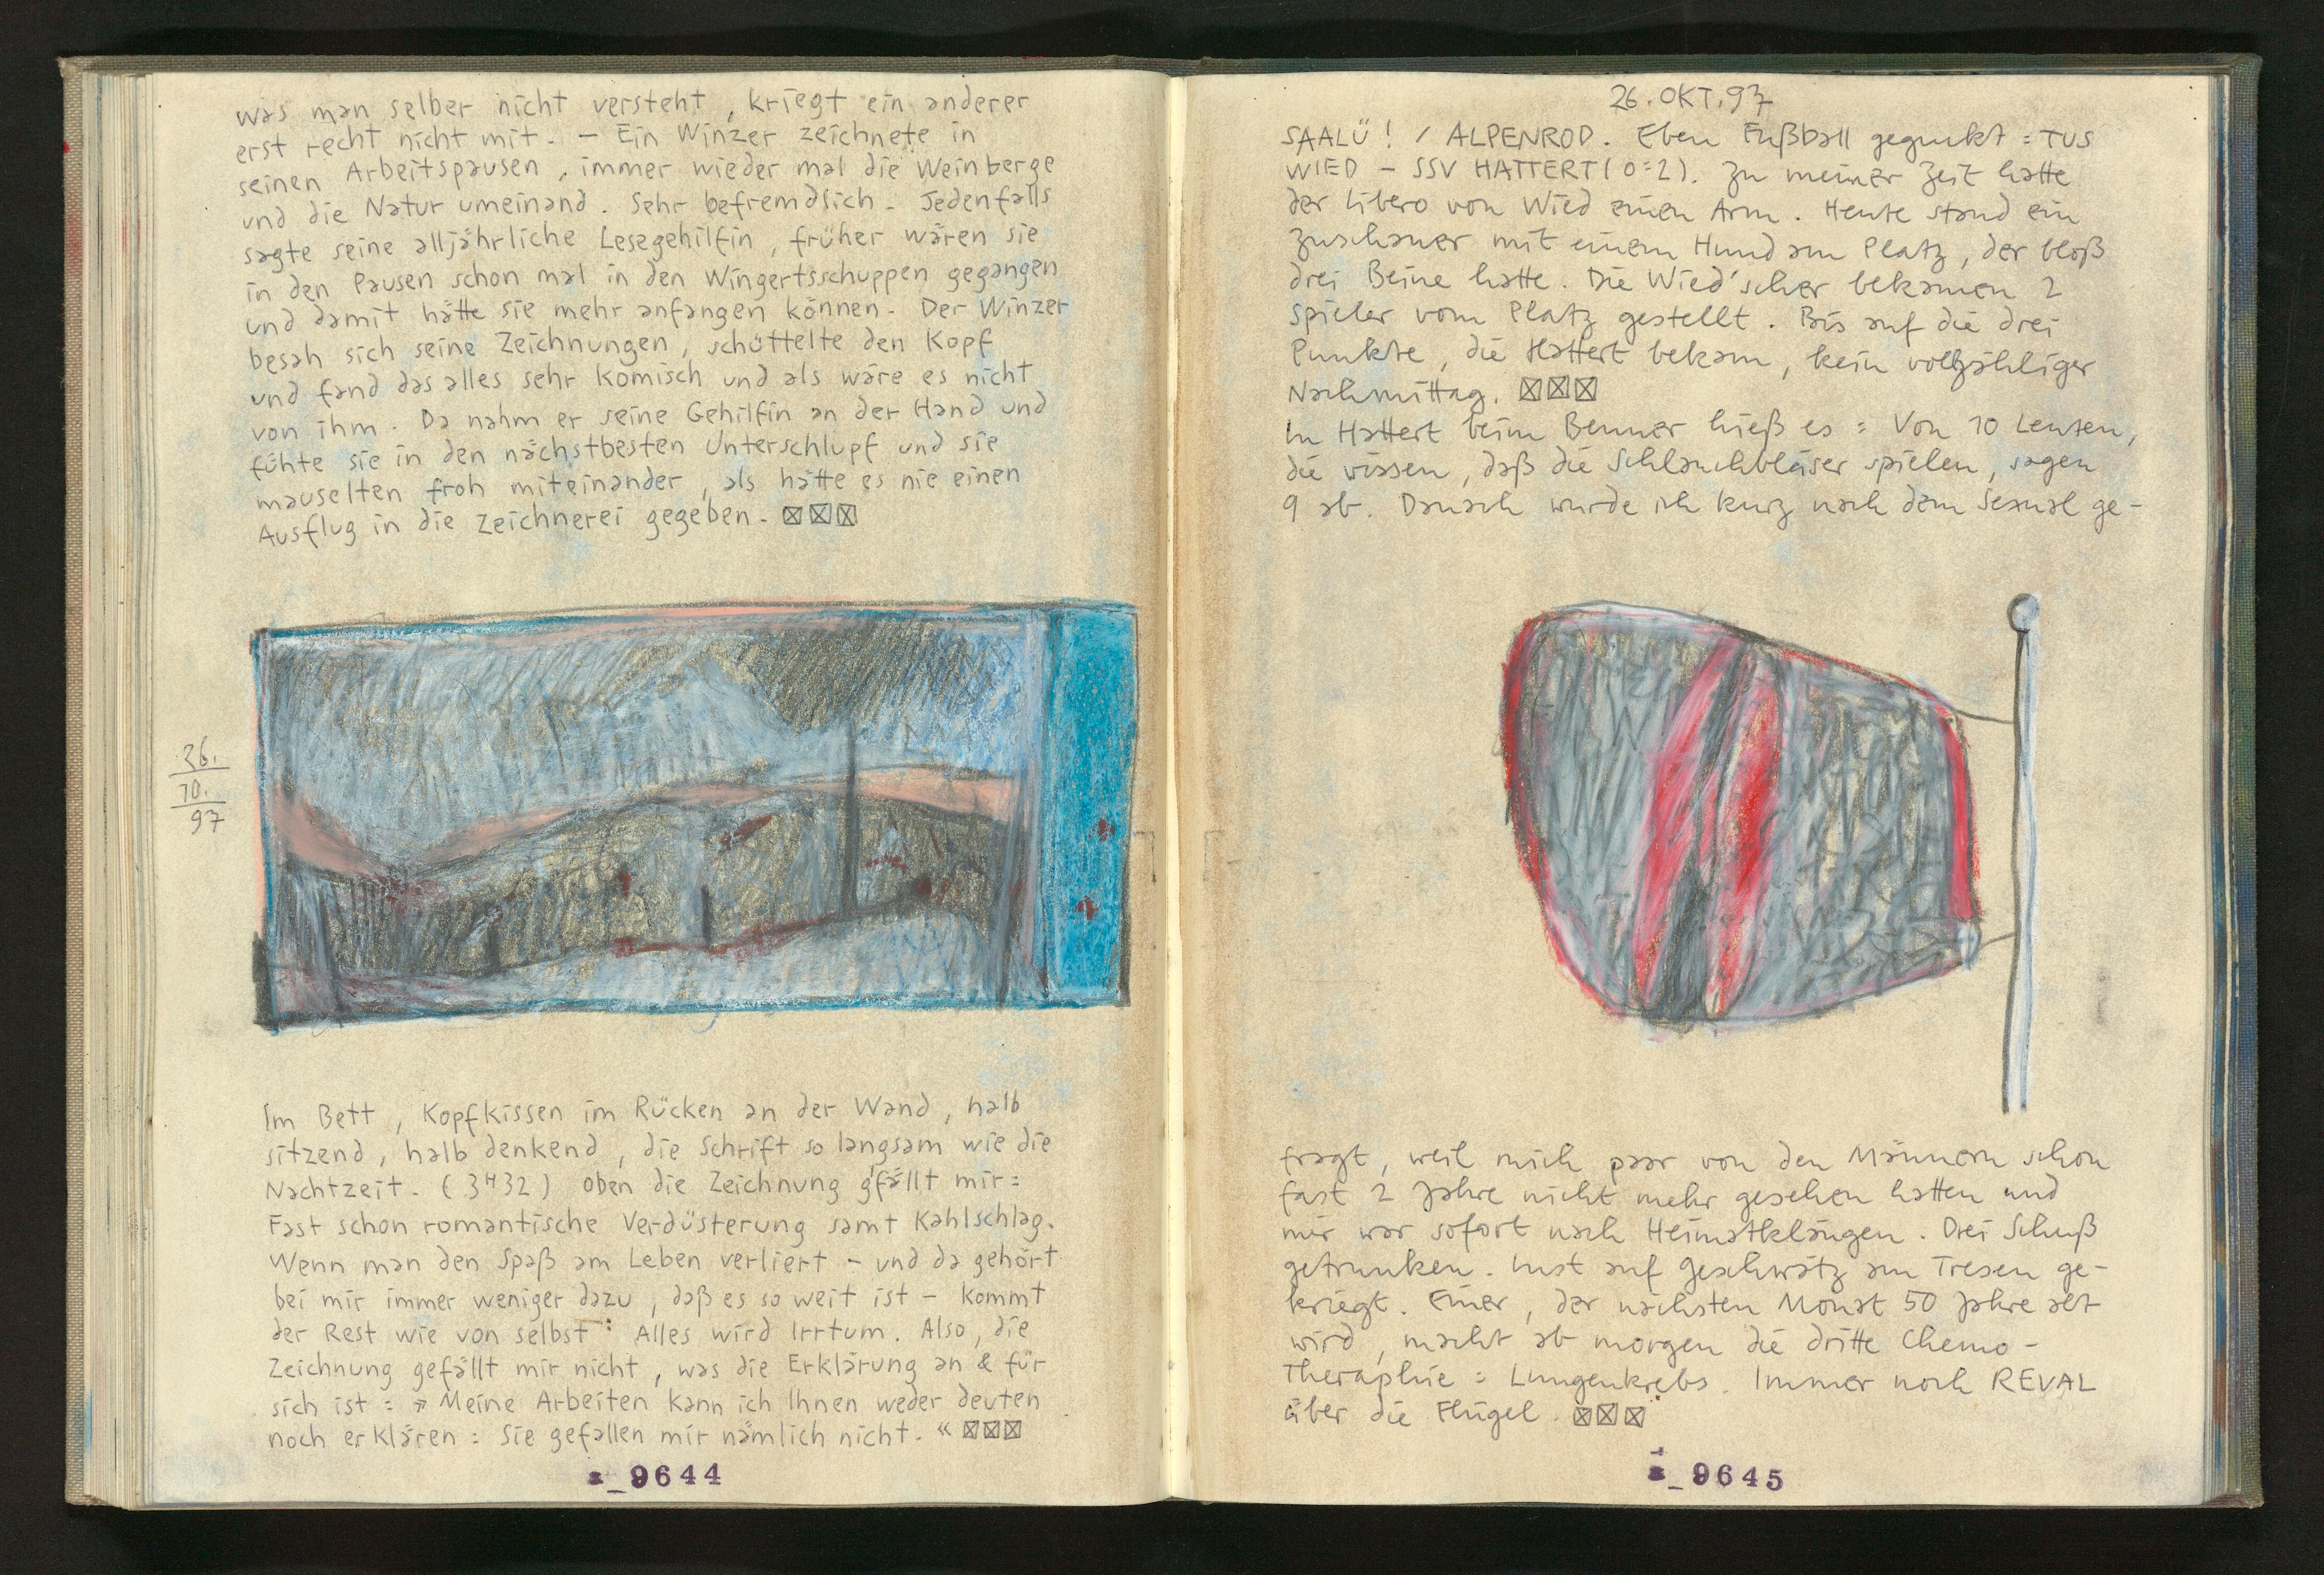 was man selber nicht versteht, kriegt ein anderer
erst recht nicht mit. – Ein Winzer zeichnete in
seinen Arbeitspausen, immer wieder mal die Weinberge
und die Natur umeinand. Sehr befremdlich. Jedenfalls
sagte seine alljährliche Lesegehilfin, früher wären sie
in den Pausen schon mal in den Wingertsschuppen gegangen
und damit hätte sie mehr anfangen können. Der Winzer
besah sich seine Zeichnungen, schüttelte den Kopf
und fand das alles sehr komisch und als wäre es nicht
von ihm. Da nahm er seine Gehilfin an der Hand und
fühte sie in den nächstbesten Unterschlupf und sie
mauselten froh miteinander, als hätte es nie einen
Ausflug in die Zeichnerei gegeben. ☒☒☒
26.
10.
97
Im Bett, Kopfkissen im Rücken an der Wand, halb
sitzend, halb denkend, die Schrift so langsam wie die
Nachtzeit. (3H32) Oben die Zeichnung g'fällt mir:
Fast schon romantische Verdüsterung samt Kahlschlag.
Wenn man den Spaß am Leben verliert – und da gehört
bei mir immer weniger dazu, daß es so weit ist – kommt
der Rest wie von selbst: Alles wird Irrtum. Also, die
Zeichnung gefällt mir nicht, was die Erklärung an & für
sich ist: » Meine Arbeiten kann ich Ihnen weder deuten
noch erklären: Sie gefallen mir nämlich nicht. « ☒☒☒
_9644
26. OKT. 97
SAALÜ! / ALPENROD. Eben Fußball geguckt: TUS
WIED – SSV HATTERT (0:2). Zu meiner Zeit hatte
der Libero von Wied einen Arm. Heute stand ein
Zuschauer mit einem Hund am Platz, der bloß
drei Beine hatte. Die Wied'scher bekamen 2
Spieler vom Platz gestellt. Bis auf die drei
Punkte, die Hattert bekam, kein vollzähliger
Nachmittag. ☒☒☒
In Hattert beim Benner hieß es: Von 10 Leuten,
die wissen, daß die Schlauchbläser spielen, sagen
9 ab. Danach wurde ich kurz nach dem Sexual ge-
fragt, weil mich paar von den Männern schon
fast 2 Jahre nicht mehr gesehen hatten und
mir war sofort nach Heimatklängen. Drei Schuß
getrunken. Lust auf Geschwätz am Tresen ge-
kriegt. Einer, der nächsten Monat 50 Jahre alt
wird, macht ab morgen die dritte Chemo-
Theraphie: Lungenkrebs. Immer noch REVAL
über die Flügel. ☒☒☒
_9645